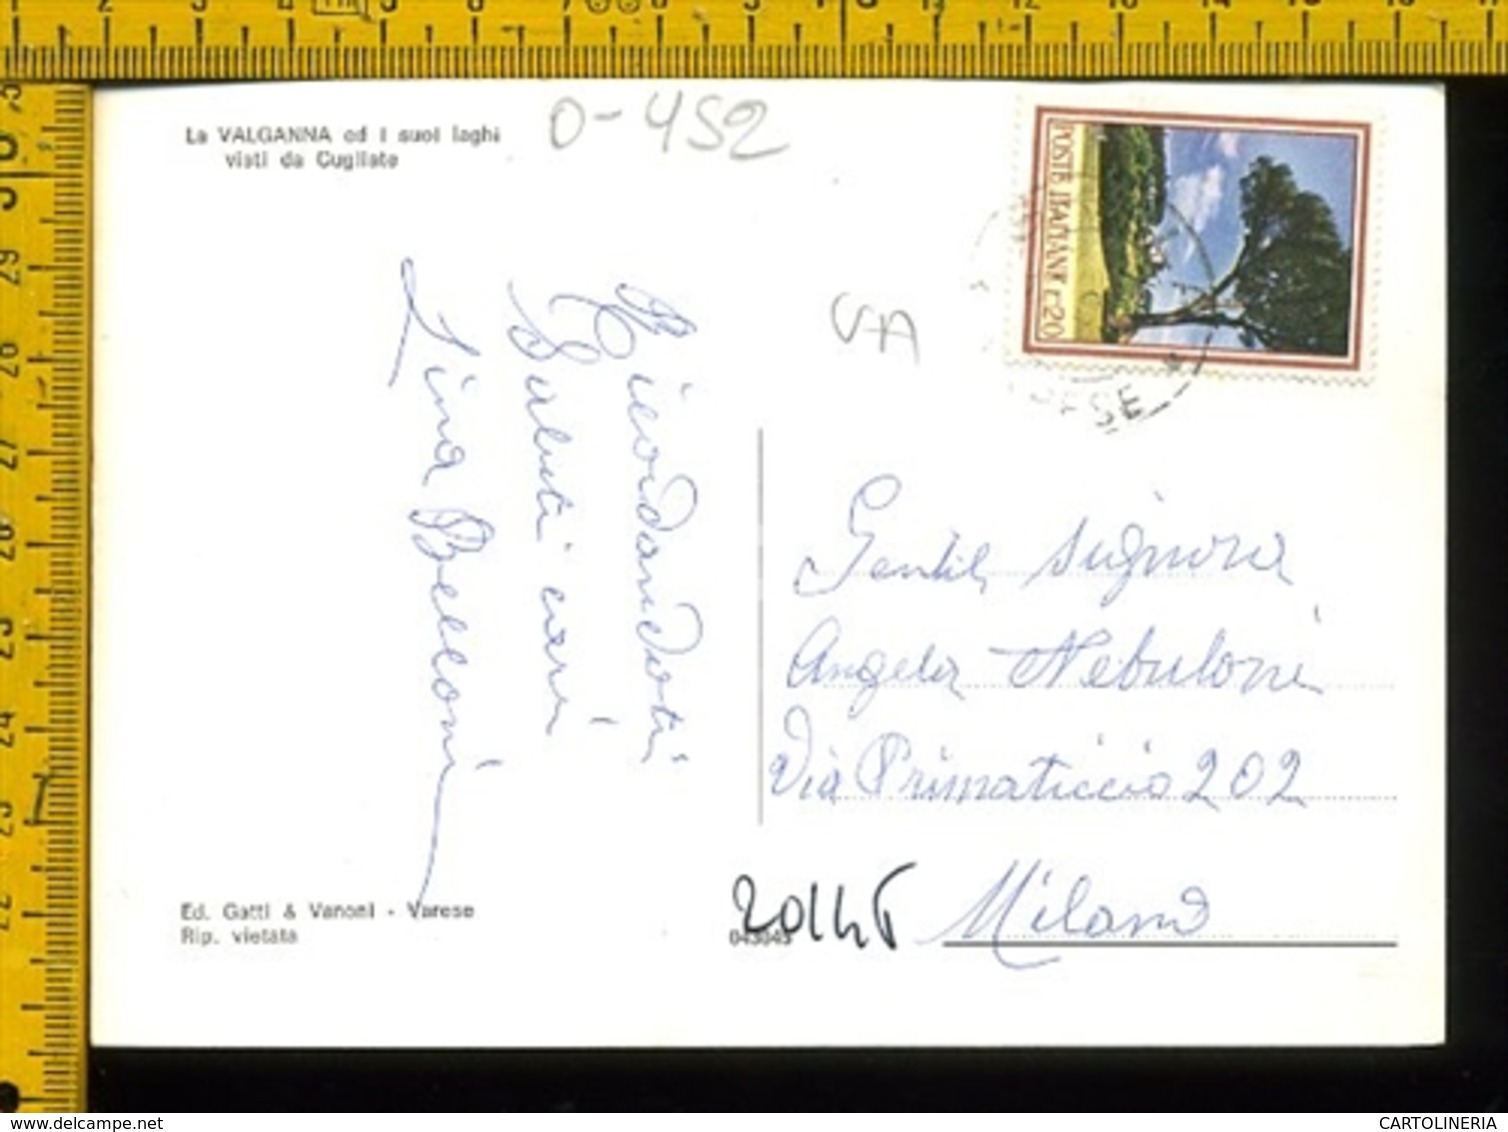 La VALGANNA ed i suoi laghi
visti da Cugliate
O-452
VA
POSTE ITALIANE L. 20
ESE
Ricordandoti
Saluti cari
Lina Belloni
Gentil signora
Angela Nebuloni
Via Primaticcio 202
20147 Milano
043045
Ed. Gatti & Vanoni - Varese
Rip. vietata
CARTOLINERIA